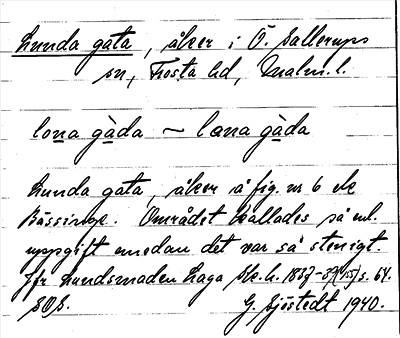 Lunda gata, åker i Ö. Sallerups
sn, Frosta hd, Malm. l.
lona gàda ~ læna gàda
Lunda gata, åker å fig. nr 6 etc
Bässinge. Området kallades så enl.
uppgift emedan det var så stenigt.
Jfr Landsmaden Laga Sk. h. 1837-39 s. 64.
G. Sjöstedt 1940.